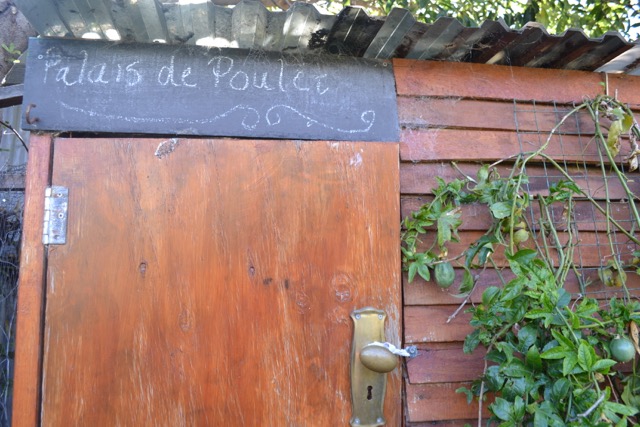 Palais de Poulet